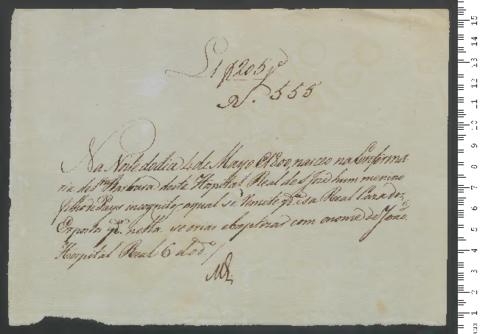 L 1 f 205
N.º 555
Na Noite do dia 4 de Mayo de 1800, nasceo na Enferma
ria de Sta Barbara deste Hospital Real de S. Jozé hum menino
filho de Pays incognitos, o qual se remete pª essa Real Caza dos
Expostos pª nella se criar e baptizar com o nome de João
Hospital Real 6 do dº